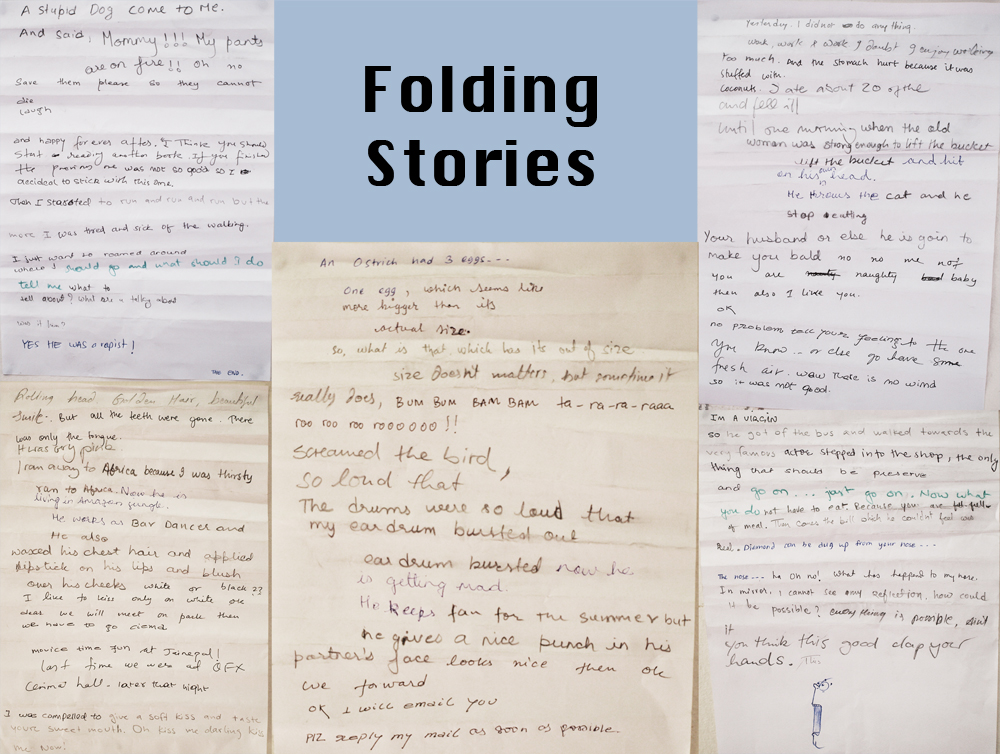 A Stupid Dog come to Me.
And said, Mommy!!! My pants
are on fire!! Oh no
Save them please so they cannot
die
laugh
and happy forever after. I Think you should
Start reading another book. If you finished
the previous one was not so good so I
decided to stick with this one.
Then I Started to run and run and run but the
more I was tired and sick of the walking.
I just want to roamed around
where I could go and what should I do
tell me what to
tell about? What are u talky about
was it fun?
YES HE WAS a rapist!
THE END.
Folding
Stories
Yesterday. I did not do any thing.
work, work & work I doubt I enjoy working
too much. And the stomach hurt because it was
stuffed with.
coconuts. I ate about 20 of the
and fell ill
Until one morning when the old
woman was strong enough to lift the bucket
lift the bucket and hit
on his own head.
He throws the cat and he
stop eatting
Your husband or else he is goin to
make you bald no no me not
you are naughty baby
then also I like you.
OK
no problem tell your feeling to the one
you know... or else go have some
fresh air. wow There is no wind
so it was not good.
An Ostrich had 3 eggs---
One egg, which seems like
more bigger than its
actual size.
so, what is that which has its out of size
size doesn't matters, but sometime it
really does, BUM BUM BAM BAM ta-ra-ra-raaa
roo roo roo roooooo!!
screamed the bird,
so loud that
The drums were so loud that
my eardrum bursted out
eardrum bursted now he
is getting mad.
He keeps fan for the summer but
he gives a nice punch in his
partner's face looks nice then ok
we forward
OK I will email you
Plz reply my mail as soon as possible.
Rolling head Golden Hair, beautiful
Smile. But all the teeth were gone. There
was only the tongue.
It was very pink
I ran away to Africa because I was thirsty
ran to Africa. Now he is
living in Amazon jungle.
He works as Bar Dancer and
He also
waxed his chest hair and applied
lipstick on his lips and blush
over his cheeks white or black??
I like to kiss only on white ok
dear we will meet on park then
we have to go cinema
movies time fun at Jainepal!
last time we were at QFX
Cenima hall. later that night
I was compelled to give a soft kiss and taste
your sweet mouth. Oh kiss me darling kiss
me Now!
I'm a VIRGIN
so he got of the bus and walked towards the
very famous actor stepped into the shop, the only
thing that should be preserve
and go on... just go on. Now what
you do not have to eat. Because you are full
of meal. Then comes the bill which he couldn't
Diamond can be dug up from your nose...
The nose... he Oh no! What has happend to my nose.
In mirror, I cannot see any reflection. how could
it be possible? everything is possible, isn't
it
you think this good clap your
hands.